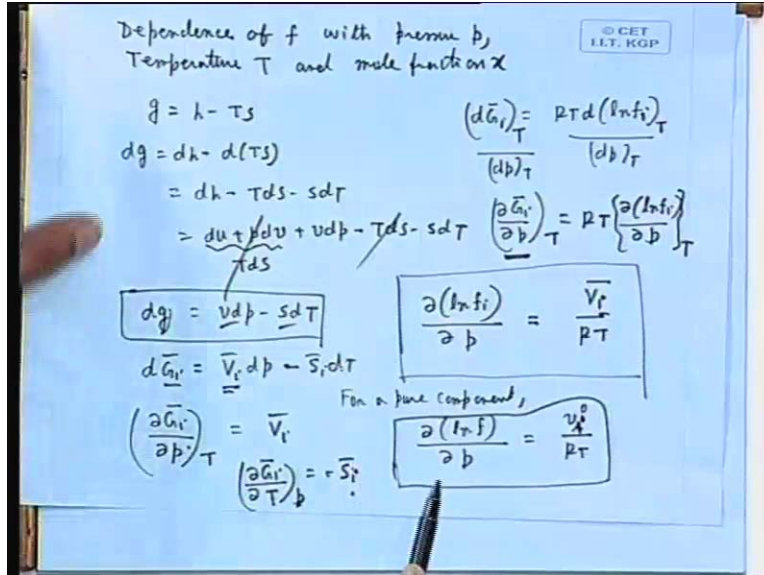 Dependence of f with pressure p,
Temperature T and mole fraction x
© CET
I.I.T. KGP
g = h - Ts
dg = dh - d(Ts)
= dh - Tds - sdT
= du + pdv + vdp - Tds - sdT
Tds
dg = vdp - sdT
dḠi = V̄i dp - S̄i dT
(∂Ḡi/∂p)T = V̄i
(∂Ḡi/∂T)p = - S̄i
(dḠi)T/(dp)T = RTd(ln fi)T/(dp)T
(∂Ḡi/∂p)T = RT{∂(ln fi)/∂p}T
∂(ln fi)/∂p = V̄i/RT
For a pure component,
∂(ln f)/∂p = /RT